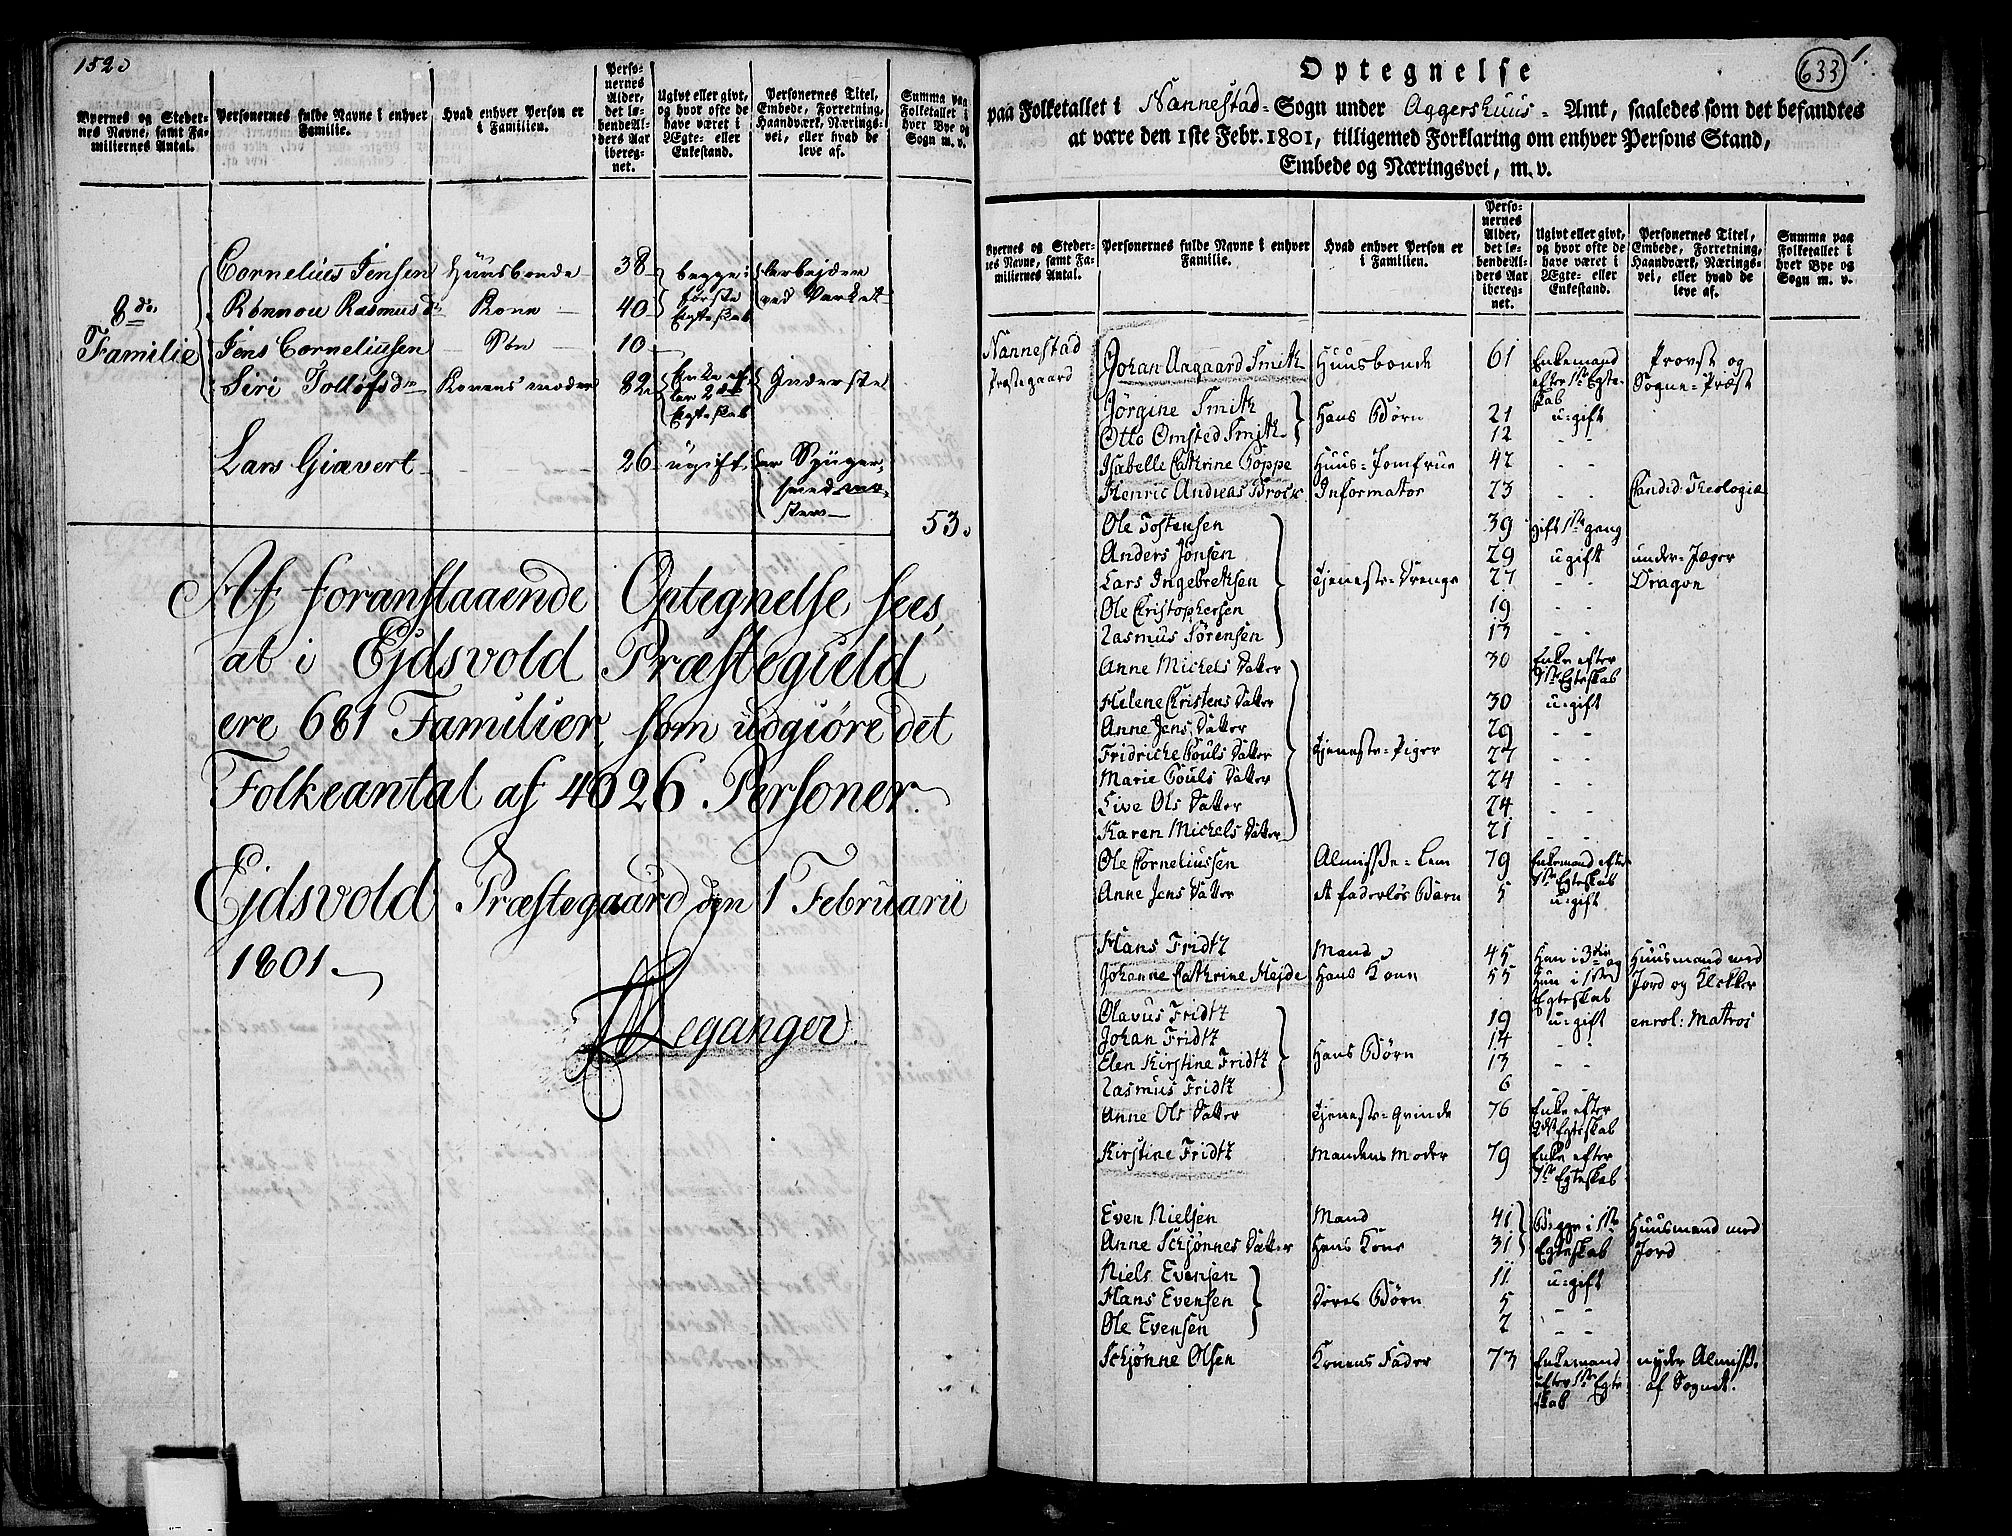 152.
Byernes og Steder-
nes Navne, samt Fa-
miliernes Antal.
Personernes fulde Navne i enhver
Familie.
Hvad enhver Person er
i Familien.
Perso-
nernes
Alder,
det lø-
bende Al-
ders Aar
iberegnet.
Ugivt eller givt,
og hvor ofte de
have været i
Ægte- eller
Enkestand.
Personernes Titel,
Embede, Forretning,
Haandværk, Nærings-
vei, eller hvad de
leve af.
Summa paa
Folketallet i
hver Bye og
Sogn m. v.
8de
Familie
Cornelius Jensen Huusbonde 38 begge i arbejder
Rønnou Rasmusd. Kone 40 første ved Værket
Egteskab
Jens Corneliusen Søn 10
Siri Tollofsdr Konens moder 82 Enke ef- Inderste
ter 2det
Egteskab
Lars Giævert 26 ugift er Spiger-
smed me-
ster
53.
Af foranstaaende Optegnelse sees,
at i Ejdsvold Præstegield
ere 681 Familier, som udgiøre det
Folkeantal af 4026 Personer.
Ejdsvold Præstegaard den 1 Februarii
1801.
Leganger
633
1.
Optegnelse
paa Folketallet i Nannestad Sogn under Aggershuus Amt, saaledes som det befandtes
at være den 1ste Febr. 1801, tilligemed Forklaring om enhver Persons Stand,
Embede og Næringsvei, m. v.
Byernes og Steder-
nes Navne, samt Fa-
miliernes Antal.
Personernes fulde Navne i enhver
Familie.
Hvad enhver Person er
i Familien.
Perso-
nernes
Alder,
det lø-
bende Al-
ders Aar
iberegnet.
Ugivt eller givt,
og hvor ofte de
have været i
Ægte- eller
Enkestand.
Personernes Titel,
Embede, Forretning,
Haandværk, Nærings-
vei, eller hvad de
leve af.
Summa paa
Folketallet i
hver Bye og
Sogn m. v.
Nannestad
Præstegaard
Johan Aagaard Smith Huusbonde 61 Enkemand Provst og
efter 1ste Egte- Sogne-Præst
skab
Jörgine Smith 21 u:gift
Hans Børn
Otto Omsted Smith 12 - -
Isabelle Cathrine Poppe Huus-Jomfrue 47 - -
Henric Andreas Brock Informator 23 - - Candid: Theologiæ
Ole Tostensen 39 gift 1ste gang
Anders Jonsen 29 u:gift under-Jæger
Lars Ingebretsen Tjeneste-Drenge 27 - - Dragon
Ole Christophersen 19 - -
Rasmus Sörensen 13 - -
Anne Michels Datter 30 Enke efter
1ste Egteskab
Helene Christens Datter 30 u:gift
Anne Jens Datter 29 - -
Fridriche Pouls Datter Tjeneste-Piger 27 - -
Marie Pouls Datter 24 - -
Live Ols Datter 24 - -
Karen Michels Datter 21 - -
Ole Corneliussen Almisse-Lem 79 Enkemand efter
1ste Egteskab
Anne Jens Datter et faderløs Barn 5 u:gift
Hans Fridtz Mand 45 Han i 3die og Huusmand med
Johanne Cathrine Hejde Hans Kone 55 Hun i 1ste Jord og Klokker
Egteskab
Olavus Fridtz 19 u:gift enrol: Matros
Johan Fridtz 14 - -
Hans Børn
Elen Kirstine Fridtz 13 - -
Rasmus Fridtz 6
Anne Ols Datter Tjeneste-Qvinde 76 Enke efter
2det Egteskab
Kirstine Fridtz Mandens Moder 79 Enke efter
1ste Egteskab
Even Nielsen Mand 41 Begge i 1ste Huusmand med
Anne Schjönnes Datter Hans Kone 31 Egteskab Jord
Niels Evensen 11 u:gift
Hans Evensen Deres Børn 5 - -
Ole Evensen 2 - -
Schjönne Olsen Konens Fader 73 Enkemand nyder Almisse
efter 1ste Egte- af Sognet.
skab